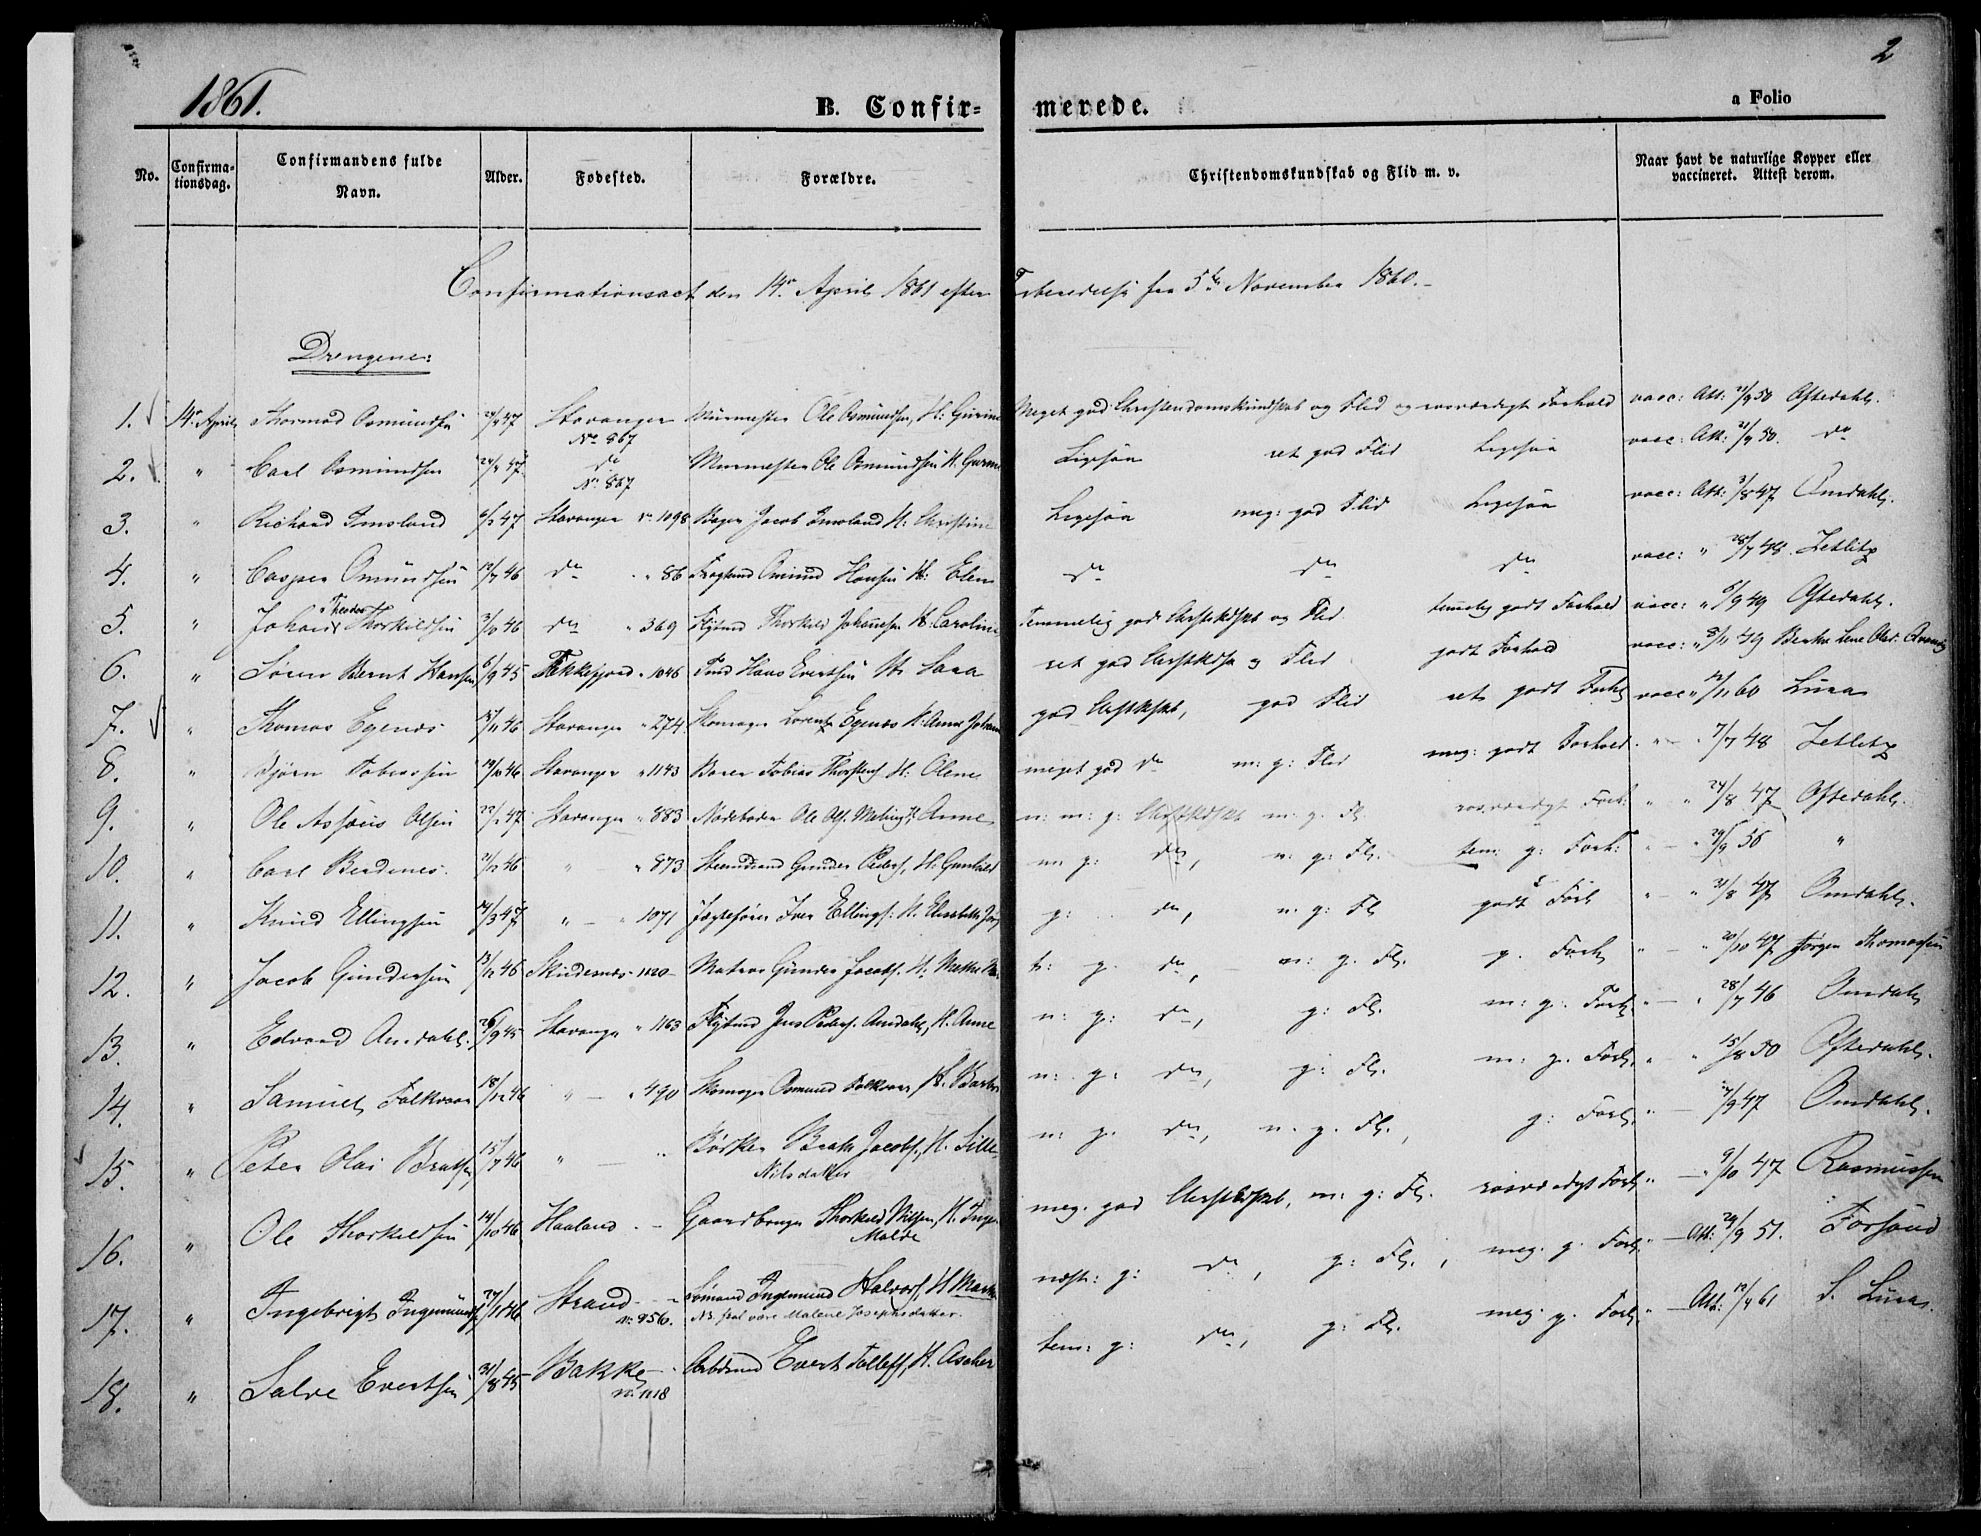 2
1861.
B. Confir- merede.
a Folio
No. Confirma-tionsdag. Confirmandens fulde Navn. Alder. Fødested. Forældre. Christendomskundskab og Flid m. v. Naar havt de naturlige Kopper eller vaccineret. Attest derom.
Confirmationsact den 14de April 1861 efter Forberedelse fra 5te November 1860.
Drengene:
1. 14de April Thormod Osmundsen 24/4 47 Stavanger No 867 Muurmester Ole Osmundsen, H: Gurine Meget god Christendomskundskab og Flid og rosværdigt Forhold vacc: Att: 21/9 50 Oftedahl.
2. " Carl Osmundsen 24/4 47 do No 867 Muurmester Ole Osmundsen H. Gurine Ligesaa ret god Flid Ligesaa vacc: Att: 21/9 50. do
3. " Richard Imsland 6/2 47 Stavanger No 1098 Bager Jacob Imsland H: Christine Ligesaa meg: god Flid Ligesaa vacc: Att: 3/8 47 Omdahl.
4. " Casper Omundsen 12/7 46 do " 86 Omund Hansen H: Elen do do do vacc: " 28/7 48. Zetlitz
5. " Johan Theodor Thorkildsen 3/10 46 do " 369 Thorkild Johannesen H: Caroline Temmelig god Chrstkdskb og Flid temelig godt Forhold vacc: " 6/9 49 Oftedahl.
6. " Søren Bernt Hansen 6/9 45 Flekkefjord " 1046 Hans Evertsen H: Sara ret god Chrstkdsk og Flid godt Forhold vacc: " 8/11 49
7. " Thomas Egenæs 15/11 46 Stavanger " 274. Skomager Lorentz Egenæs H: Anne Johan god Chrstkskb, god Flid ret godt Forh vacc " 12/11 60 Lura
8. " Bjørn Tobiassen 19/10 46 Stavanger " 1143 Tobias Thorstens H: Olene meget god do m: g: Flid meg: godt Forhold. " - " 7/7 48 Zetlitz
9. " Ole Olsen 22/1 47. Stavanger " 883 Ole Ols. H. Anne n: m: g: Chrstkdskb m. g. Fl. rosværdigt Forh: " " 24/8 47 Oftedahl.
10. " Carl Berdenes. 21/12 46 " " 873 Gunder Peders, H: Gunhild m g: do, n: g: Fl. tem: g: Forh: " - 29/9 56 "
11. " Knud Ellingsen 14/3 47 " - " 1071 Jægtefører Iver Ellings: H. Elisabeth g: do, n: g: Fl godt Forh " - " 31/8 47 Omdahl.
12. " Jacob Gundersen 13/12 46 Skudesnæs - 1120 - Matros Gunder Jacobs. H. t: g. do, n: g. Fl. g. Forh " - " 20/10 47 Jørgen Thomassen
13. " Edvard Amdahl. 26/9 45 Stavanger " 1163 Jens Peders. Amdahl, H. Anne n: g: do, g: Fl. m: g: Forh. " - " 28/7 46 Omdahl
14. " Samuel Folkvord 18/12 46 " - " 490 Skomager Osmund Folkvord, H. n: g: do, g: Fl. m: g. Forh. " " 15/8 50 Oftedahl.
15. " Peter Olai Bertsen 15/7 46 " - " Bødker Jacobs, H. Sille Nilsdatter n: g. do, n. g. Fl., g: Forh. " - 7/9 47 Omdahl.
16. " Ole Thorkildsen 14/10 46 Haaland. - Gaardbruger Thorkild Nilsen, H. Inge Malde meg. god Chrstkdskb, m: g: Fl. rosværdigt Forh. " - " 9/10 47 Rasmussen
17. " Ingebrigt Ingemunds 27/1 46 Strand. No 956. Ingemund Halvors, H Marthe NB skal være Malene Josephsdatter. næst: g: do, g: Fl., meg. g. Forh. " - Att: 29/9 51. Forsand
18. " Salve Evertsen 31/8 45 Bakke - No 1118 Arbdmd Evert Tollefs, H. Aseher tem: g: do, g: Fl. meg: g. Forh. " - Att: 12/4 61 S. Lura.